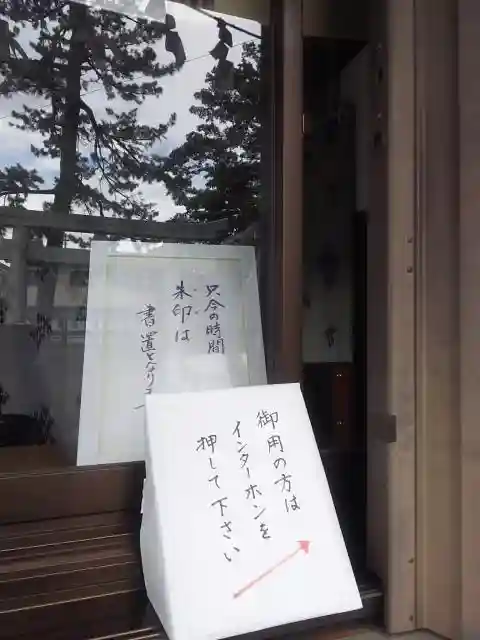 只今の時間
朱印は
書置となりま
御用の方は
インターホンを
押して下さい